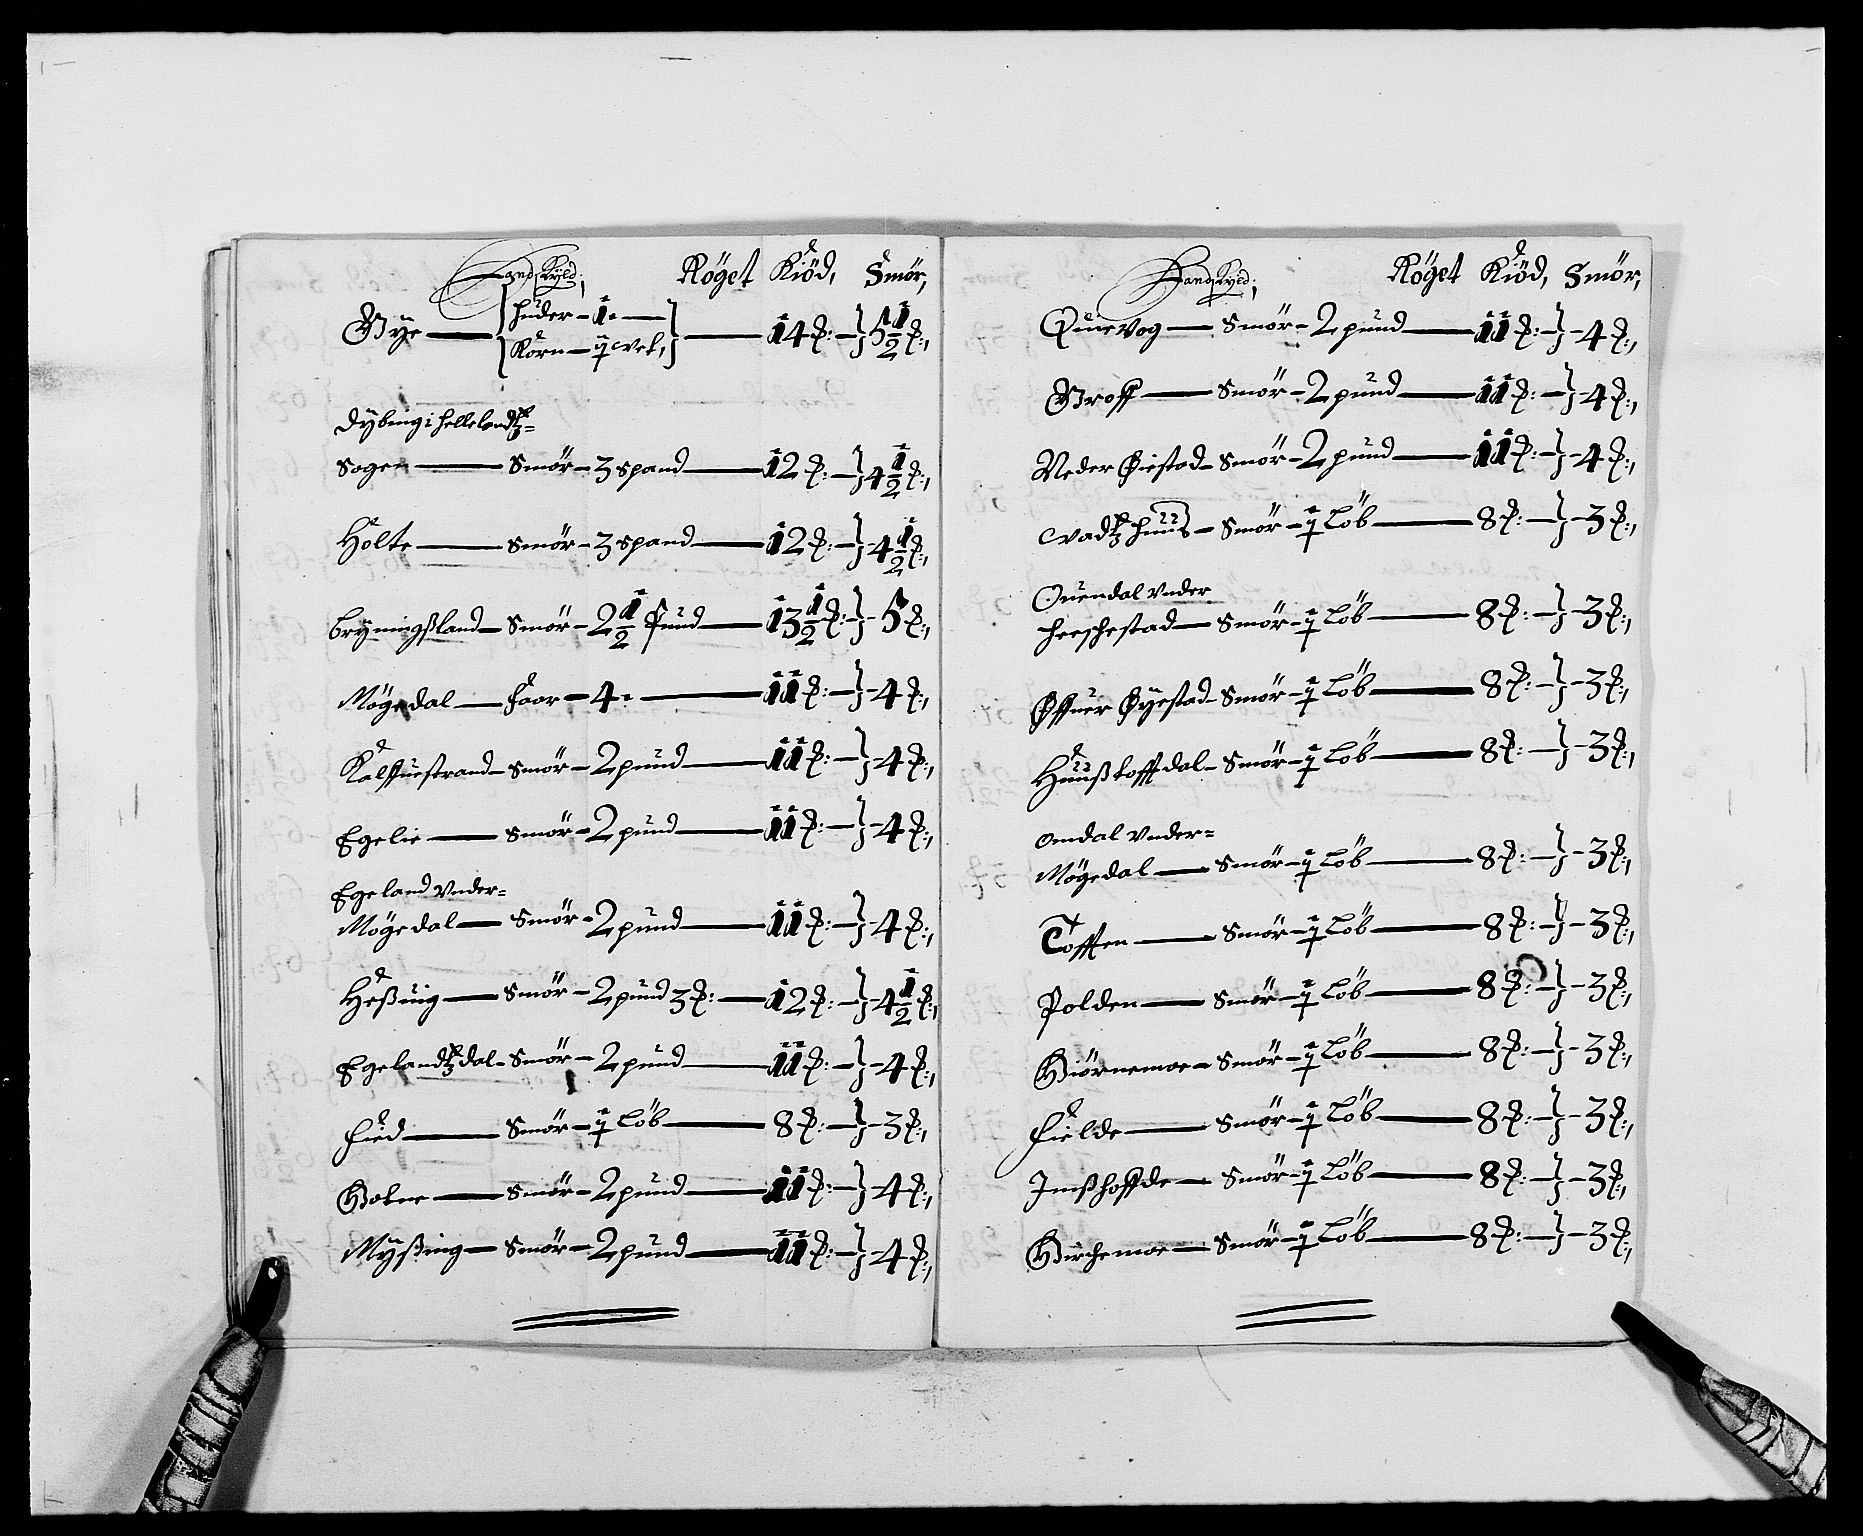 Landskyld; Röget Kiöd, Smör,
Bye — { huder – 1 – — 14 ℔: – } 5 1/2 ℔:,
Korn – 1 vet,
Dybing i hellelandtz=
Sogen — Smör – 3 spand — 12 ℔: – } 4 1/2 ℔:,
Holte — Smör – 3 spand — 12 ℔: – } 4 1/2 ℔:,
Bryningßland – Smör – 2 1/2 Pund — 13 1/2 ℔: – } – 5 ℔:,
Mögedal — faar – 4 – — 11 ℔: – } – 4 ℔:,
Kalffuestrand – Smör – 2 pund — 11 ℔: – } – 4 ℔:,
Egelie — Smör – 2 pund — 11 ℔: – } – 4 ℔:,
Egeland vnder=
Mögedal — Smör – 2 pund — 11 ℔: – } – 4 ℔:,
Heßuig — Smör – 2 pund 3 ℔: — 12 ℔: – } 4 1/2 ℔:,
Egelandtzdal – Smör – 2 pund — 11 ℔: – } – 4 ℔:,
hied — Smör – 1 Löb — 8 ℔: – } – 3 ℔:,
— Smör – 2 pund — 11 ℔: – } – 4 ℔:,
Myßing — Smör – 2 pund — 11 ℔: – } – 4 ℔:,
Landskyld; Röget Kiöd, Smör,
Quevog — Smör – 2 pund — 11 ℔: – } – 4 ℔:,
Groff — Smör – 2 pund — 11 ℔: – } – 4 ℔:,
Neder Øiestad – Smör – 2 pund — 11 ℔: – } – 4 ℔:,
vadtzhuus – Smör – 1 Löb — 8 ℔: – } – 3 ℔:,
Ouendal vnder
heschestad — Smör – 1 Löb — 8 ℔: – } – 3 ℔:,
Øffuer Øyestad – Smör – 1 Löb — 8 ℔: – } – 3 ℔:,
Huußtofftdal – Smör – 1 Löb — 8 ℔: – } – 3 ℔:,
Omdal vnder=
Mögedal — Smör – 1 Löb — 8 ℔: – } – 3 ℔:,
Tofften — Smör – 1 Löb — 8 ℔: – } – 3 ℔:,
Polden — Smör – 1 Löb — 8 ℔: – } – 3 ℔:,
Biörnemoe – Smör – 1 Löb — 8 ℔: – } – 3 ℔:,
hielde — Smör – 1 Löb — 8 ℔: – } – 3 ℔:,
Imßhoffde — Smör – 1 Löb — 8 ℔: – } – 3 ℔:,
Birchemoe — Smör – 1 Löb — 8 ℔: – } – 3 ℔:,